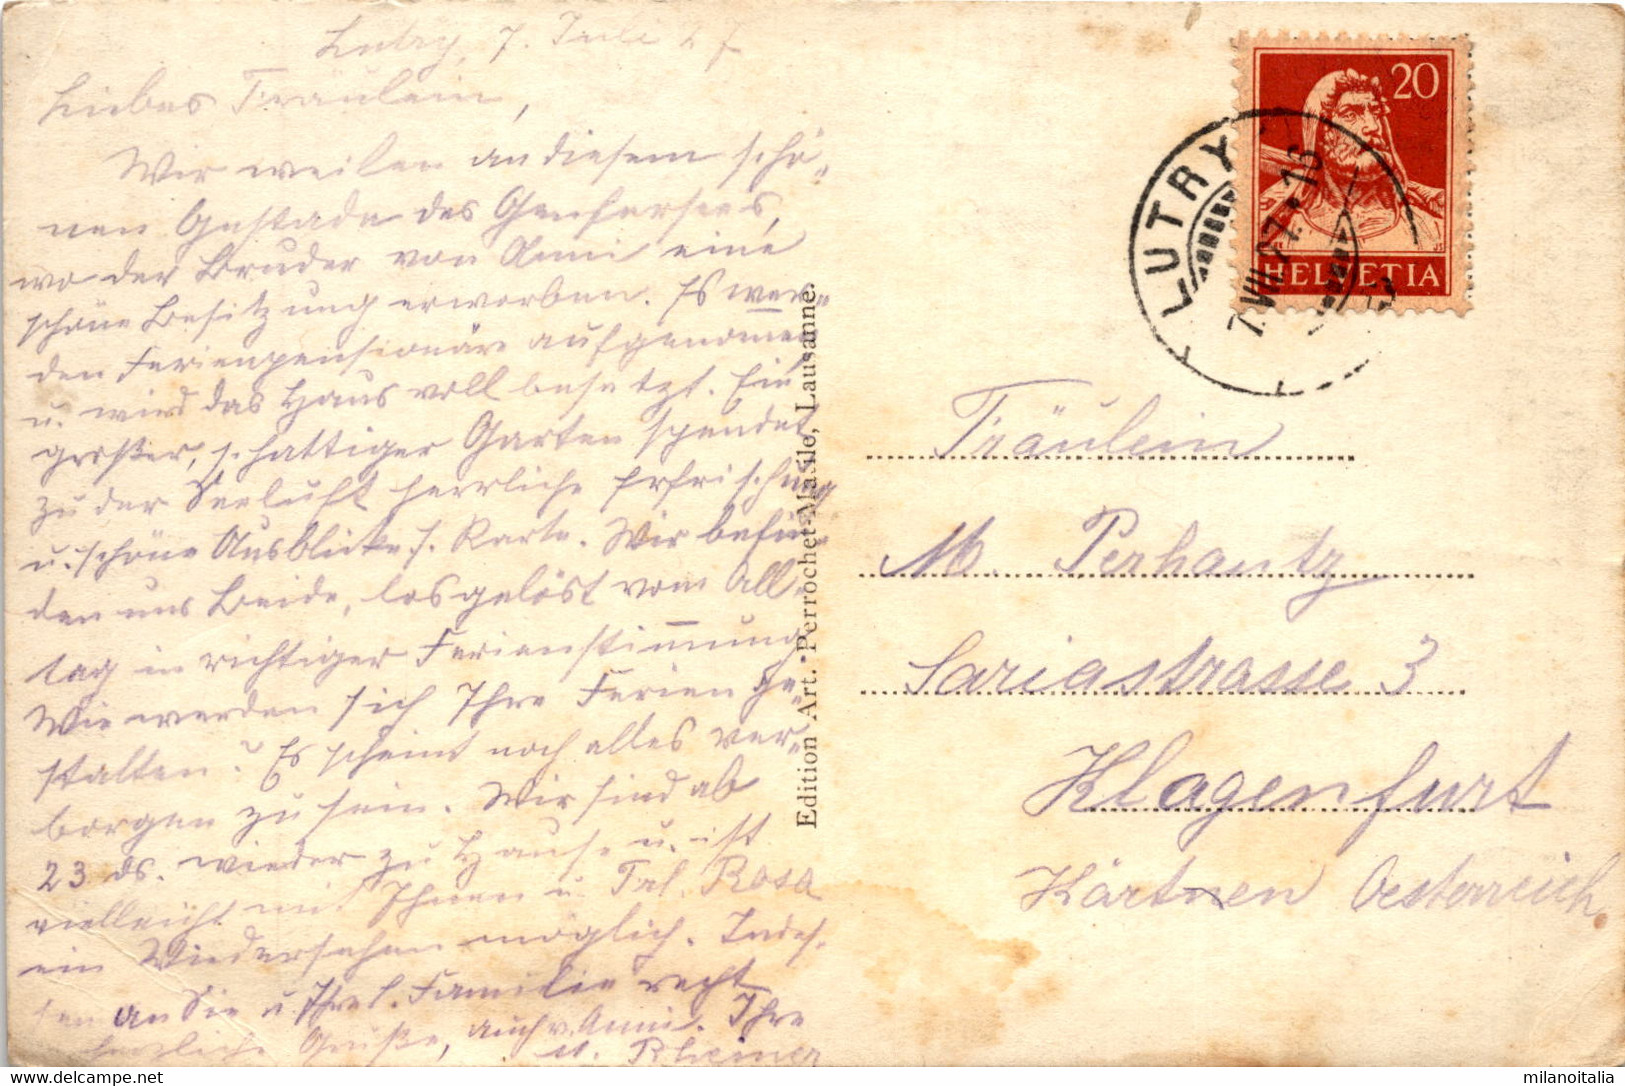 Lutry, 7. Juli 27
Liebes Fräulein,
Wir weilen an diesem schö-
nen Gestade des Genfersees,
wo der Bruder von Anni eine
schöne Besitzung erworben. Es wer-
den Ferienpensionäre aufgenomen
u. wird das Haus voll besetzt. Ein
großer, schattiger Garten spendet
zu der Seeluft herrliche Erfrischung
u. schöne Ausblicke s. Karte. Wir befin-
den uns Beide, losgelöst vom All-
tag in richtiger Ferienstimung
Wie werden sich Ihre Ferien ge-
stalten? Es scheint noch alles ver-
borgen zu sein. Wir sind ab
23 ds. wieder zu Hause u. ist
vielleicht mit Ihnen u. Frl. Rosa
ein Wiedersehen möglich. Indes-
sen an Sie u. Ihre l. Familie recht
herzliche Grüße, auch v. Anni. Ihre
M. Rheiner
Edition Art. Perrochet-Matile, Lausanne.
20
HELVETIA
LUTRY
7.VII.27.16
Fräulein
M. Perhautz
Sariastrasse 3
Klagenfurt
Kärtnen Oesterreich
milanoitalia